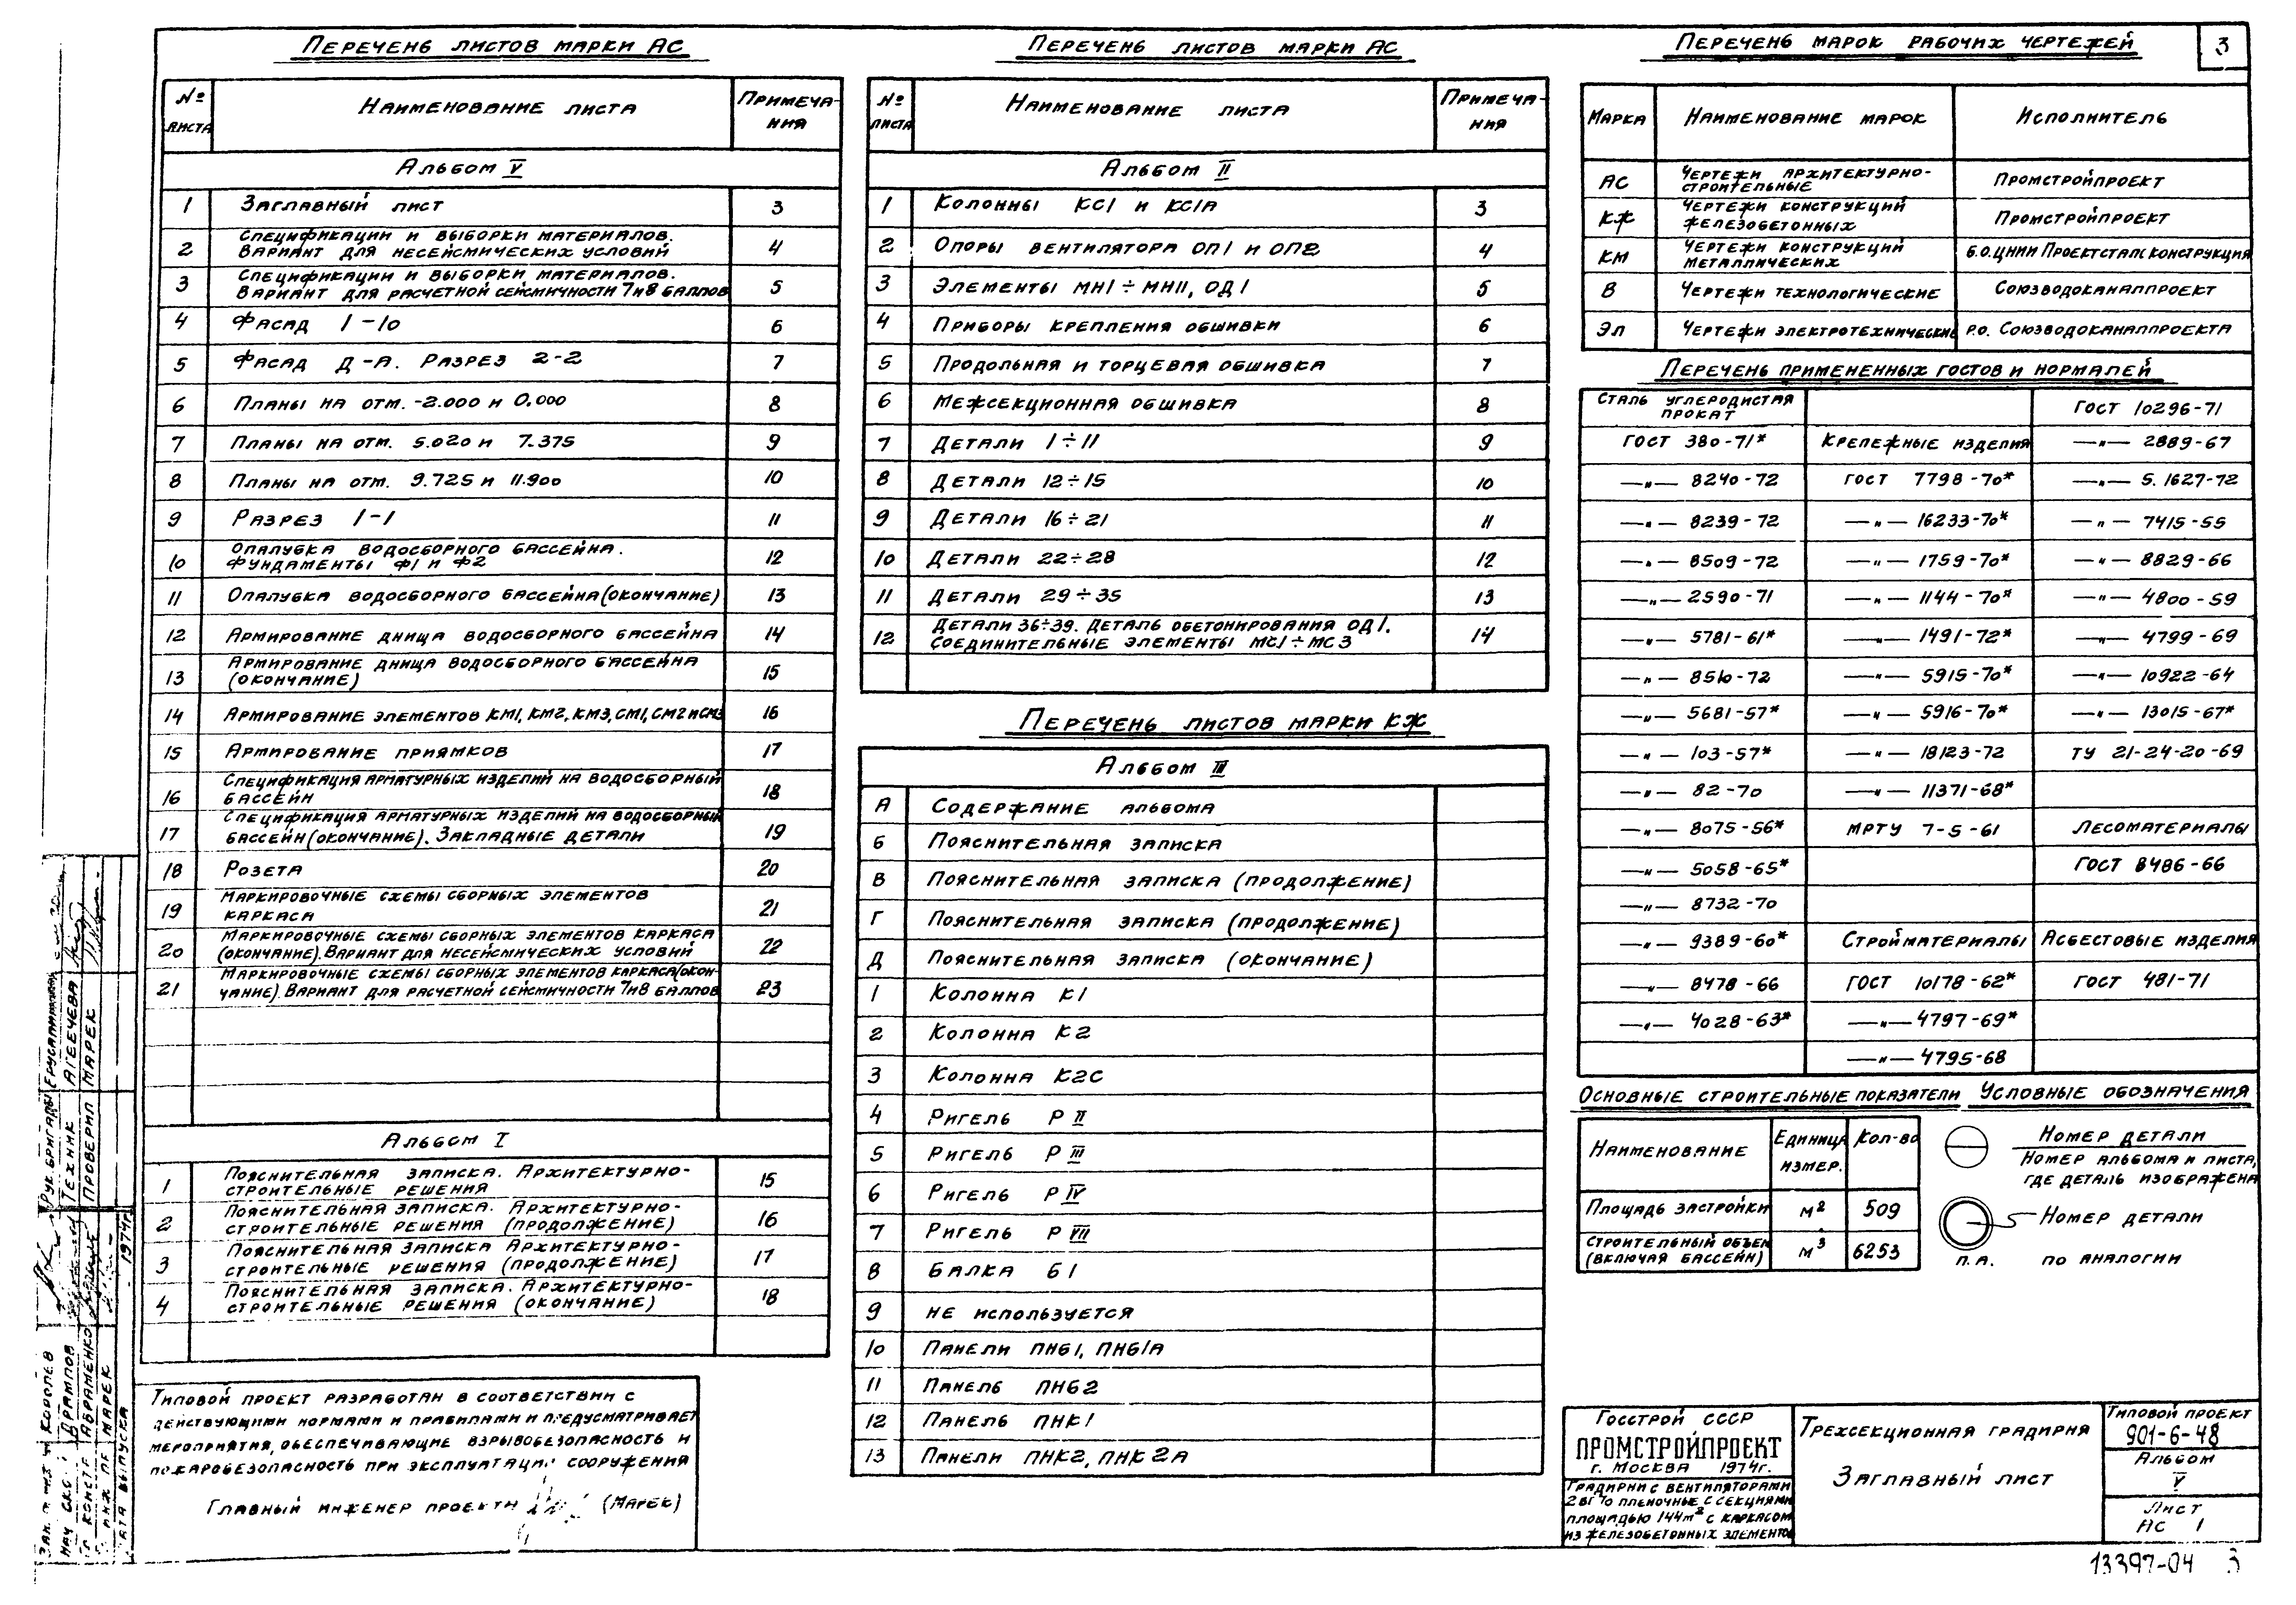 3
Перечень листов марки АС
№ листа | Наименование листа | Примечания
Альбом V
1 Заглавный лист 3
2 Спецификации и выборки материалов.
Вариант для несейсмических условий 4
3 Спецификации и выборки материалов.
Вариант для расчетной сейсмичности 7 и 8 баллов 5
4 Фасад 1-10 6
5 Фасад Д-А. Разрез 2-2 7
6 Планы на отм. -2.000 и 0.000 8
7 Планы на отм. 5.020 и 7.375 9
8 Планы на отм. 9.725 и 11.900 10
9 Разрез 1-1 11
10 Опалубка водосборного бассейна.
Фундаменты Ф1 и Ф2 12
11 Опалубка водосборного бассейна (окончание) 13
12 Армирование днища водосборного бассейна 14
13 Армирование днища водосборного бассейна
(окончание) 15
14 Армирование элементов КМ1, КМ2, КМ3, СМ1, СМ2 и СМ3 16
15 Армирование приямков 17
16 Спецификация арматурных изделий на водосборный
бассейн 18
17 Спецификация арматурных изделий на водосборный
бассейн (окончание). Закладные детали 19
18 Розета 20
19 Маркировочные схемы сборных элементов
каркаса 21
20 Маркировочные схемы сборных элементов каркаса
(окончание). Вариант для несейсмических условий 22
21 Маркировочные схемы сборных элементов каркаса (окон-
чание). Вариант для расчетной сейсмичности 7 и 8 баллов 23
Альбом I
1 Пояснительная записка. Архитектурно-
строительные решения 15
2 Пояснительная записка. Архитектурно-
строительные решения (продолжение) 16
3 Пояснительная записка Архитектурно-
строительные решения (продолжение) 17
4 Пояснительная записка. Архитектурно-
строительные решения (окончание) 18
Типовой проект разработан в соответствии с
действующими нормами и правилами и предусматривает
мероприятия, обеспечивающие взрывобезопасность и
пожаробезопасность при эксплуатации сооружения
Главный инженер проекта (Марек)
Перечень листов марки АС
№ листа | Наименование листа | Примечания
Альбом II
1 Колонны КС1 и КС1А 3
2 Опоры вентилятора ОП1 и ОП2 4
3 Элементы МН1÷МН11, ОД1 5
4 Приборы крепления обшивки 6
5 Продольная и торцевая обшивка 7
6 Межсекционная обшивка 8
7 Детали 1÷11 9
8 Детали 12÷15 10
9 Детали 16÷21 11
10 Детали 22÷28 12
11 Детали 29÷35 13
12 Детали 36÷39. Деталь обетонирования ОД1.
Соединительные элементы МС1÷МС3 14
Перечень листов марки КЖ
Альбом III
А Содержание альбома
Б Пояснительная записка
В Пояснительная записка (продолжение)
Г Пояснительная записка (продолжение)
Д Пояснительная записка (окончание)
1 Колонна К1
2 Колонна К2
3 Колонна К2С
4 Ригель Р II
5 Ригель Р III
6 Ригель Р IV
7 Ригель Р VII
8 Балка Б1
9 Не используется
10 Панели ПНБ1, ПНБ1А
11 Панель ПНБ2
12 Панель ПНК1
13 Панели ПНК2, ПНК2А
Перечень марок рабочих чертежей
Марка | Наименование марок | Исполнитель
АС Чертежи архитектурно-
строительные Промстройпроект
КЖ Чертежи конструкций
железобетонных Промстройпроект
КМ Чертежи конструкций
металлических Б.О. ЦНИИ Проектстальконструкция
В Чертежи технологические Союзводоканалпроект
ЭЛ Чертежи электротехнические Р.О. Союзводоканалпроекта
Перечень примененных гостов и нормалей
Сталь углеродистая прокат | | ГОСТ 10296-71
ГОСТ 380-71* | Крепежные изделия | —"— 2889-67
—"— 8240-72 | ГОСТ 7798-70* | —"— 5.1627-72
—"— 8239-72 | —"— 16233-70* | —"— 7415-55
—"— 8509-72 | —"— 1759-70* | —"— 8829-66
—"— 2590-71 | —"— 1144-70* | —"— 4800-59
—"— 5781-61* | —"— 1491-72* | —"— 4799-69
—"— 8510-72 | —"— 5915-70* | —"— 10922-64
—"— 5681-57* | —"— 5916-70* | —"— 13015-67*
—"— 103-57* | —"— 18123-72 | ТУ 21-24-20-69
—"— 82-70 | —"— 11371-68*
—"— 8075-56* | МРТУ 7-5-61 | Лесоматериалы
—"— 5058-65* | | ГОСТ 8486-66
—"— 8732-70
—"— 9389-60* | Стройматериалы | Асбестовые изделия
—"— 8478-66 | ГОСТ 10178-62* | ГОСТ 481-71
—"— 4028-63* | —"— 4797-69*
—"— 4795-68
Основные строительные показатели
Наименование | Единица измер. | Кол-во
Площадь застройки м² 509
Строительный объем
(включая бассейн) м³ 6253
Условные обозначения
Номер детали
Номер альбома и листа,
где деталь изображена
Номер детали
п.а. по аналогии
Госстрой СССР
ПРОМСТРОЙПРОЕКТ
г. Москва 1974г.
Градирни с вентиляторами
2ВГ70 пленочные с секциями
площадью 144м² с каркасом
из железобетонных элементов
Трехсекционная градирня
Заглавный лист
Типовой проект
901-6-48
Альбом
V
Лист
АС 1
13397-04 3
Рук. бригады
Техник Агеечева
Проверил Марек
Королев
Абраменко
Марек
Дата выпуска 1974г.